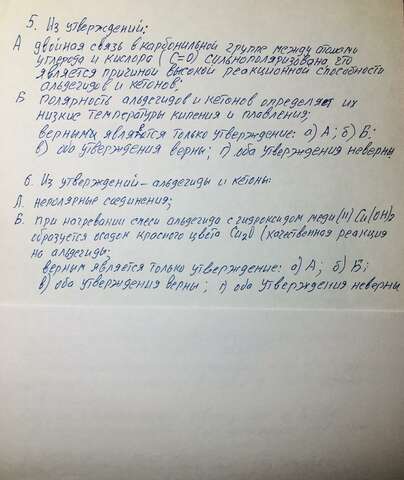 5. Из утверждений:
А двойная связь в карбонильной группе между атомами
углерода и кислора (С=О) сильнополяризована, что
является причиной высокой реакционной способности
альдегидов и кетонов;
Б полярность альдегидов и кетонов определяет их
низкие температуры кипения и плавления;
верным является только утверждение: а) А; б) Б;
в) оба утверждения верны; г) оба утверждения неверны
6. Из утверждений - альдегиды и кетоны:
А. неполярные соединения;
Б. при нагревании смеси альдегида с гидроксидом меди (II) Cu(OH)2
образуется осадок красного цвета Cu2O (качественная реакция
на альдегиды;
верным является только утверждение: а) А; б) Б;
в) оба утверждения верны; г) оба утверждения неверны